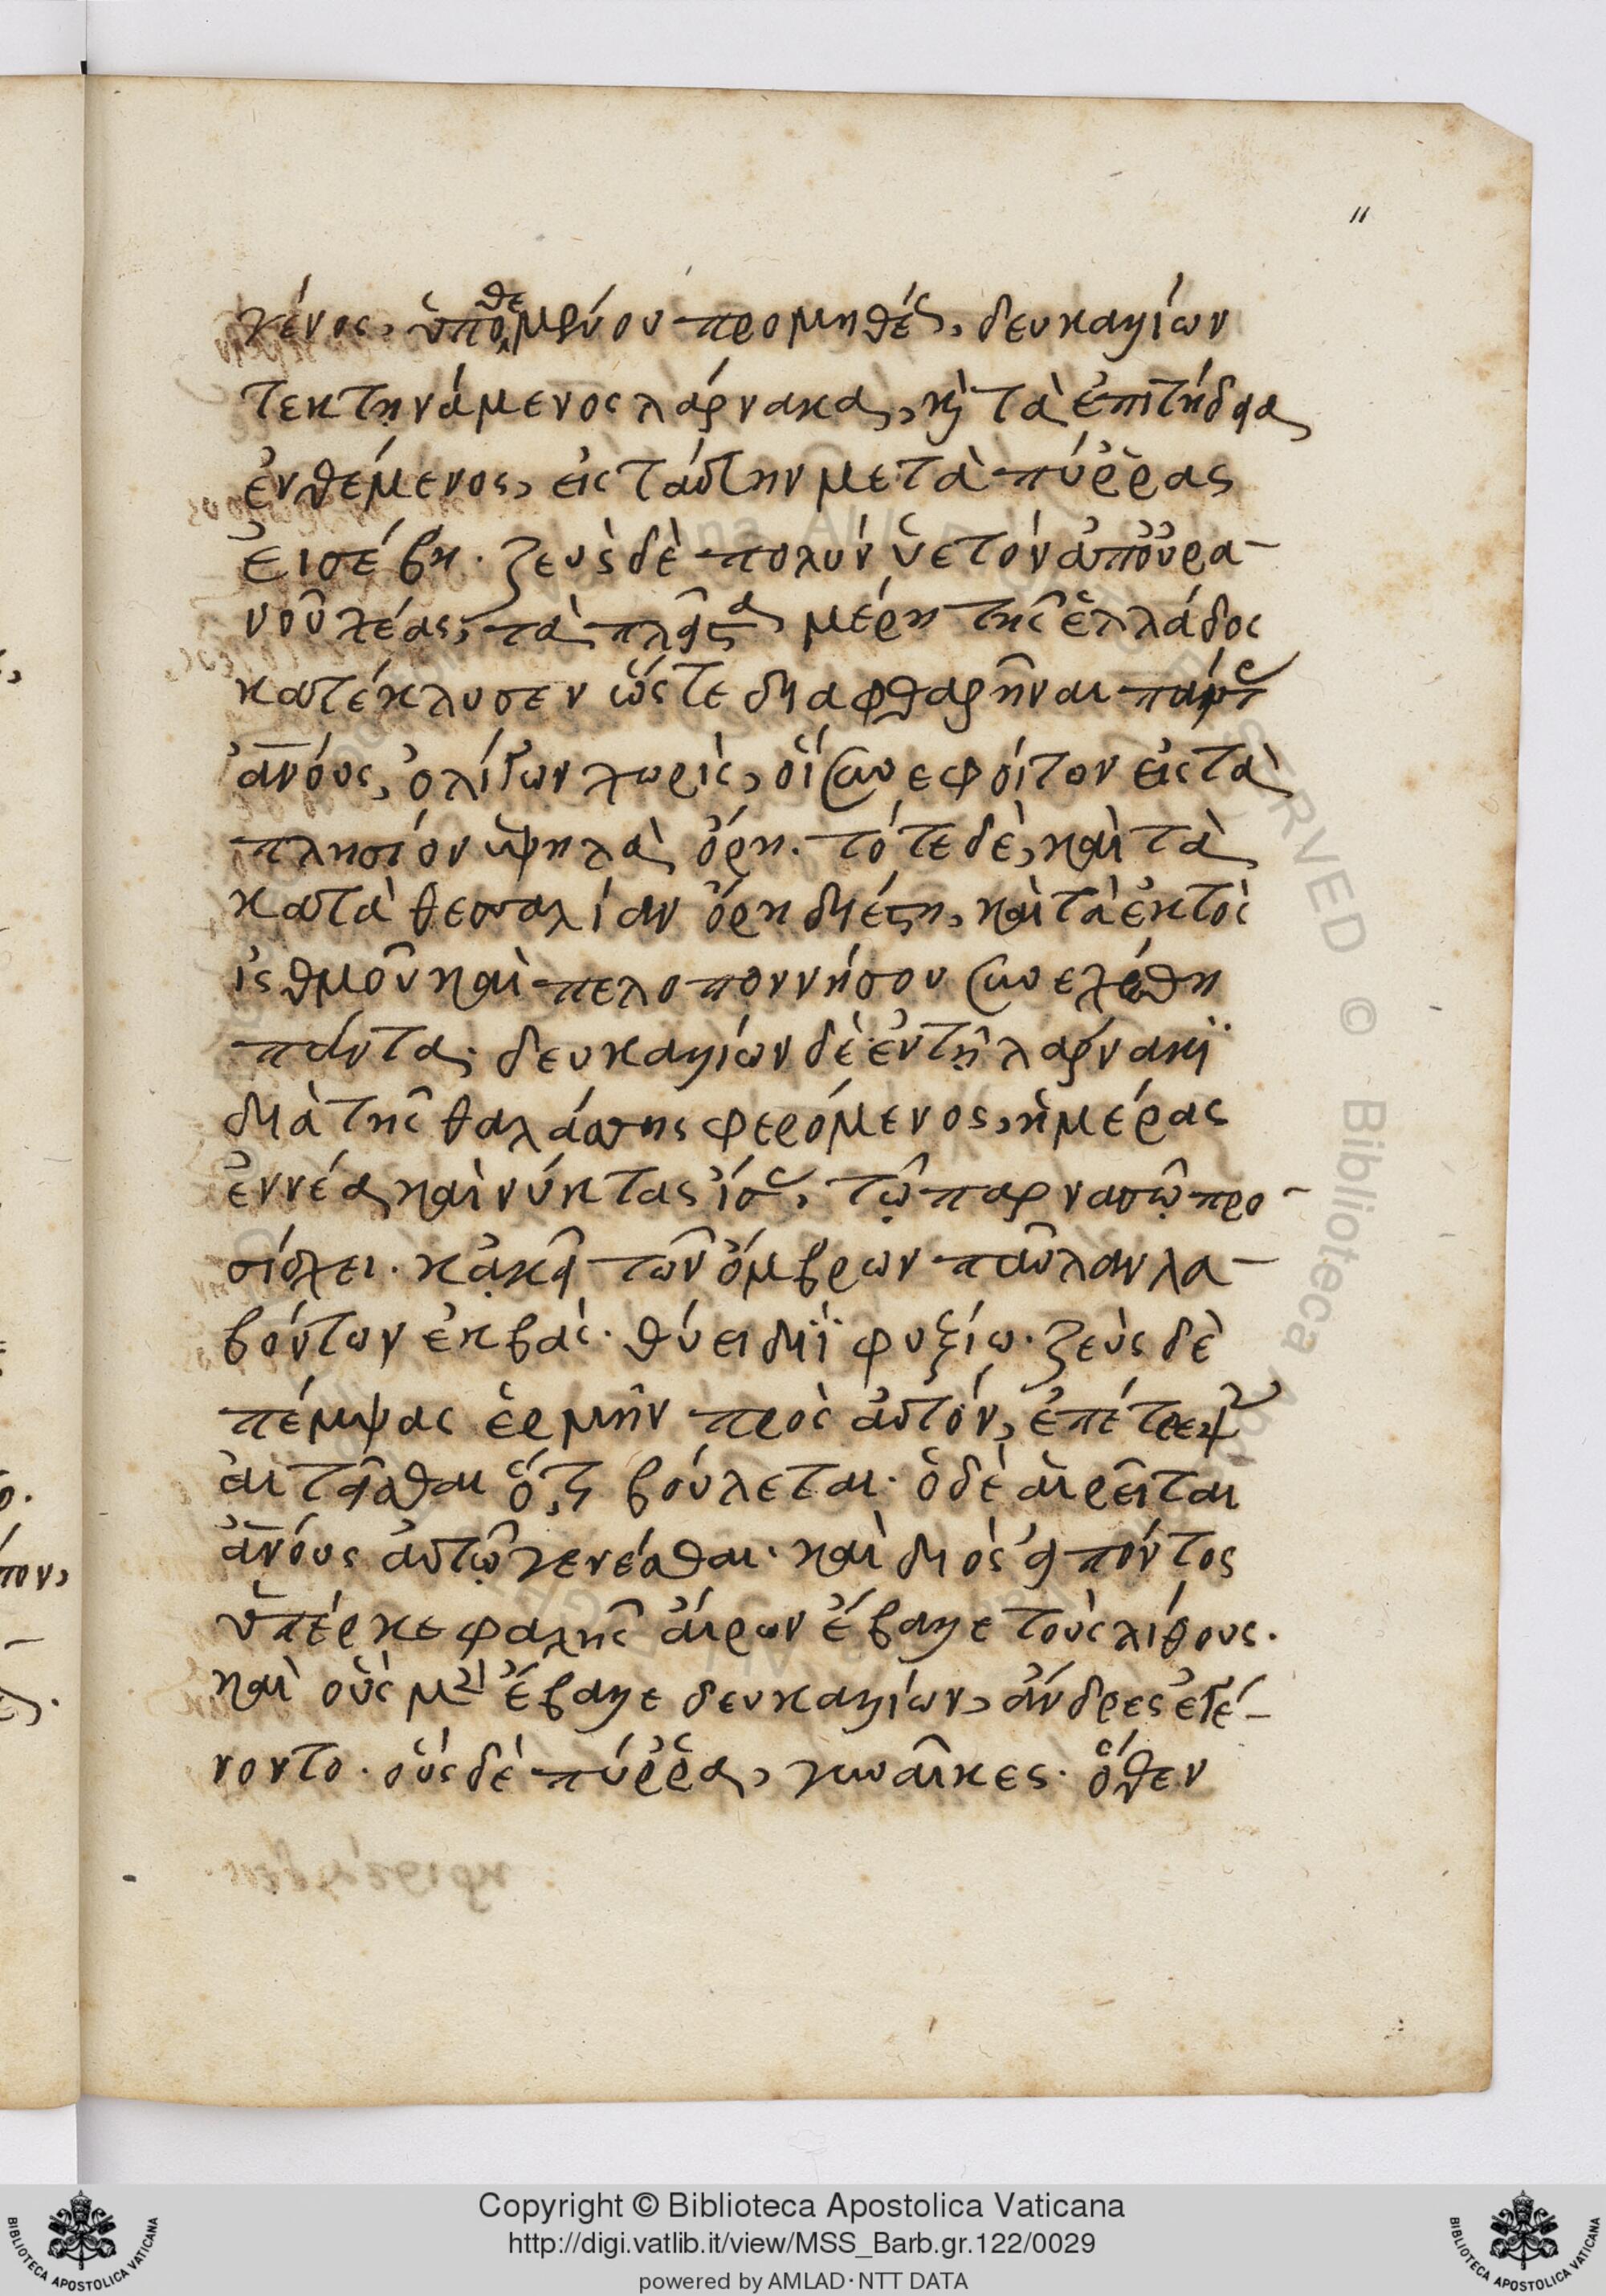 11
γένος, ὑποθεμένου προμηθέως, δευκαλίων
τεκτηνάμενος λάρνακα, καὶ τὰ ἐπιτήδεια
ἐνθέμενος, εἰς ταύτην μετὰ πύῤῥας
ἐισέβη. ζεὺς δὲ πολὺν ὑετὸν ἀπ' οὐρα-
νοῦ χέας, τὰ πλεῖστα μέρη τῆς ἑλλάδος
κατέκλυσεν ὥστε διαφθαρῆναι πάντας
ἀνους, ὀλίγων χωρὶς, οἳ συνεφοίτον εἰς τὰ
πλησίον ὑψηλὰ ὄρη. τότε δὲ, καὶ τὰ
κατὰ θεσσαλίαν ὄρη διέστη, καὶ τὰ ἐκτὸς
ἰσθμοῦ καὶ πελοποννήσου συνεχέθη
πάντα. δευκαλίων δὲ ἐν τῇ λάρνακι
διὰ τῆς θαλάσσης φερόμενος, ἡμέρας
ἐννέα καὶ νύκτας ἴσας, τῷ παρνασῷ προ-
σίσχει. κἀκεῖ τῶν ὄμβρων παῦλαν λα-
βόντων ἐκβὰς. θύει διῒ φυξίω. ζεὺς δὲ
πέμψας ἑρμῆν πρὸς αὐτόν, ἐπέτρεψεν
αἰτεῖσθαι ὅ,τι βούλεται. ὁ δὲ αἱρεῖται
ἀνους αὐτῷ γενέσθαι. καὶ διὸς εἰπόντος
ὑπὲρ κεφαλῆς ἄιρων ἔβαλλε τοὺς λίθους.
καὶ οὓς μὲν ἔβαλλε δευκαλίων, ἄνδρες ἐγέ-
νοντο. οὓς δὲ πύῤῥα, γυναῖκες. ὅθεν
Copyright © Biblioteca Apostolica Vaticana
http://digi.vatlib.it/view/MSS_Barb.gr.122/0029
powered by AMLAD·NTT DATA
BIBLIOTECA APOSTOLICA VATICANA
BIBLIOTECA APOSTOLICA VATICANA